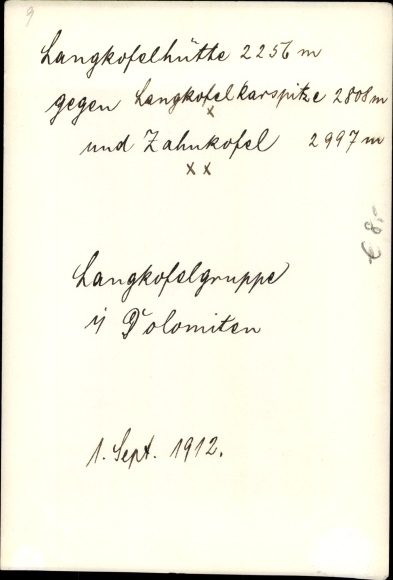 9
Langkofelhütte 2256 m
gegen Langkofelkarspitze 2808 m
x
und Zahnkofel 2997 m
x x
€ 8,-
Langkofelgruppe
i/ Dolomiten
1. Sept. 1912.